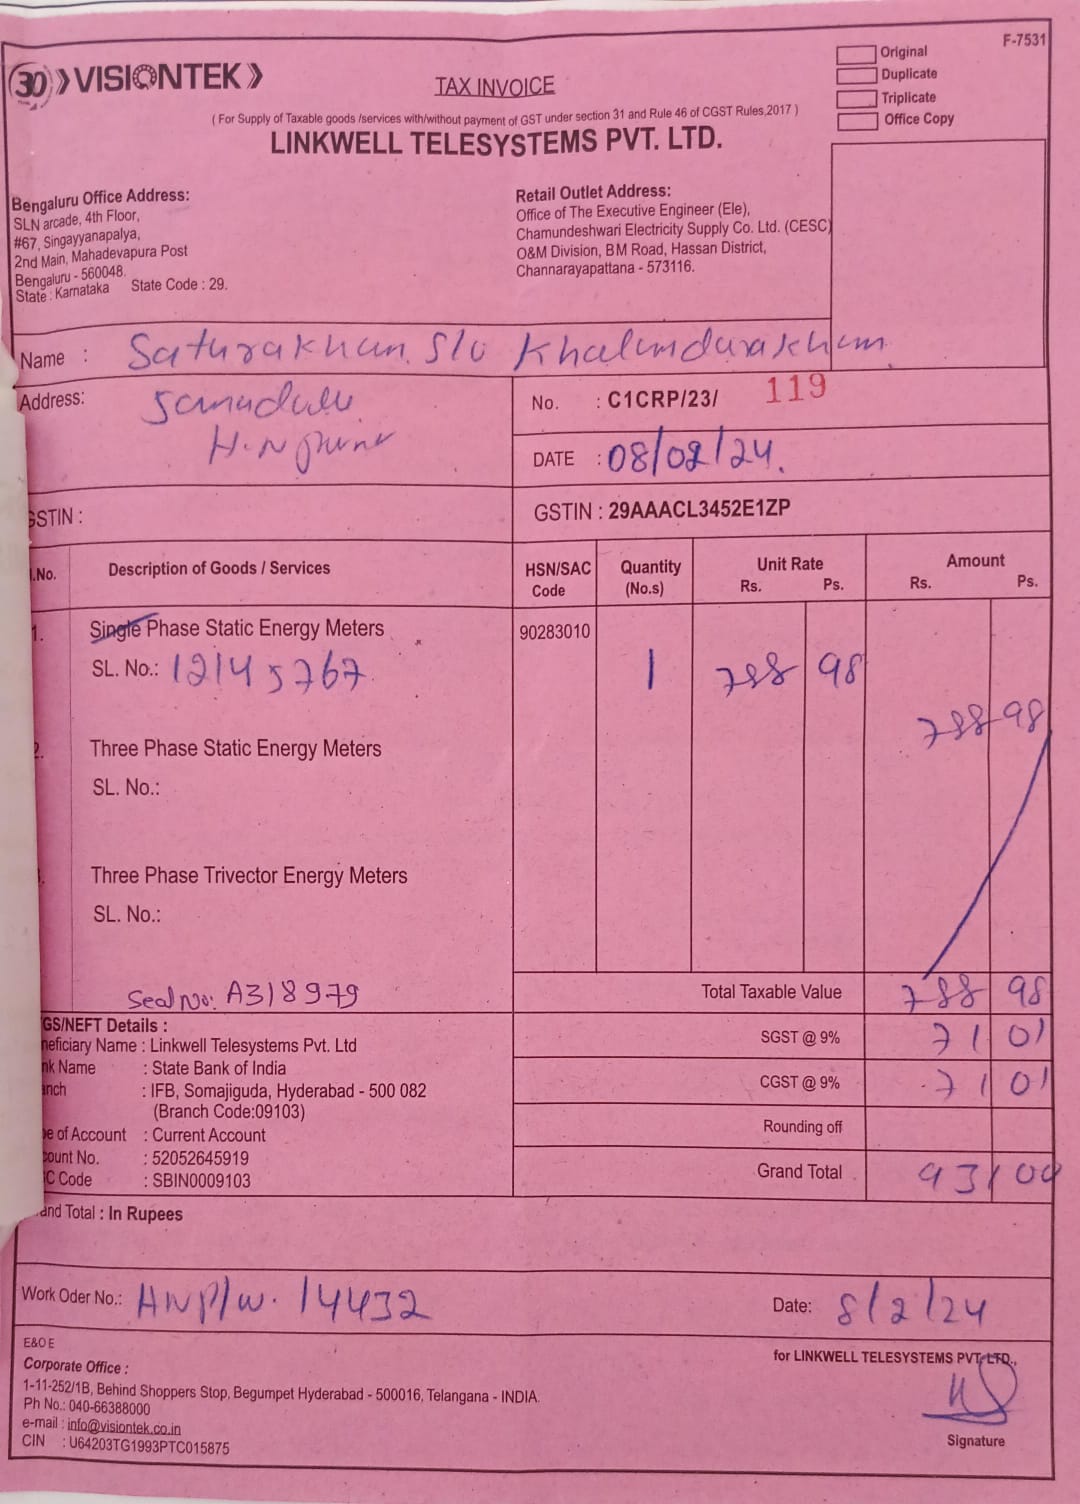 F-7531
Original
Duplicate
Triplicate
Office Copy
30 VISIONTEK
TAX INVOICE
( For Supply of Taxable goods /services with/without payment of GST under section 31 and Rule 46 of CGST Rules,2017 )
LINKWELL TELESYSTEMS PVT. LTD.
Bengaluru Office Address:
SLN arcade, 4th Floor,
#67, Singayyanapalya,
2nd Main, Mahadevapura Post
Bengaluru - 560048.
State : Karnataka State Code : 29.
Retail Outlet Address:
Office of The Executive Engineer (Ele),
Chamundeshwari Electricity Supply Co. Ltd. (CESC)
O&M Division, BM Road, Hassan District,
Channarayapattana - 573116.
Name : Saturakhan S/o
Address:
No. : C1CRP/23/ 119
DATE : 08/02/24.
GSTIN :
GSTIN : 29AAACL3452E1ZP
.No. Description of Goods / Services HSN/SAC Code Quantity (No.s) Unit Rate Rs. Ps. Amount Rs. Ps.
1. Single Phase Static Energy Meters 90283010
SL. No.: 12145767 1 788 98 788 98
2. Three Phase Static Energy Meters
SL. No.:
Three Phase Trivector Energy Meters
SL. No.:
Seal No: A318979
Total Taxable Value 788 98
SGST @ 9% 71 01
CGST @ 9% 71 01
Rounding off
Grand Total 931 00
GS/NEFT Details :
neficiary Name : Linkwell Telesystems Pvt. Ltd
nk Name : State Bank of India
anch : IFB, Somajiguda, Hyderabad - 500 082
(Branch Code:09103)
pe of Account : Current Account
count No. : 52052645919
C Code : SBIN0009103
and Total : In Rupees
Work Oder No.: HNP/W. 14432
Date: 8/2/24
E&O E
Corporate Office :
1-11-252/1B, Behind Shoppers Stop, Begumpet Hyderabad - 500016, Telangana - INDIA.
Ph No.: 040-66388000
e-mail : info@visiontek.co.in
CIN : U64203TG1993PTC015875
for LINKWELL TELESYSTEMS PVT. LTD.,
Signature